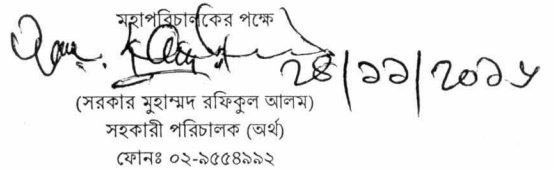 মহাপরিচালকের পক্ষে
২৪/১১/২০১৮
(সরকার মুহাম্মদ রফিকুল আলম)
সহকারী পরিচালক (অর্থ)
ফোনঃ ০২-৯৫৫৪৯৯২